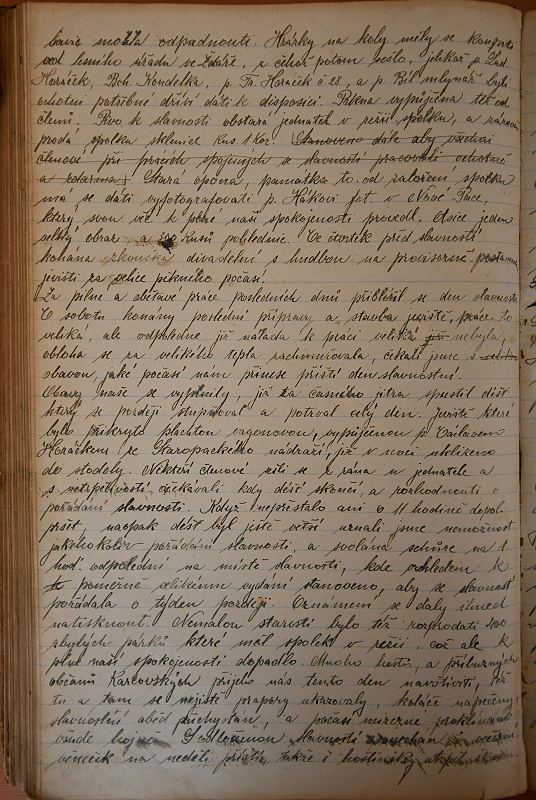 odpadnouti. Hrázky na koly měly se koupiti
od lesního úřadu ve Ždáře, z čehož potom sešlo, jelikož p. Lad.
Horáček, Boh. Koudelka, p. Fr. Horáček č 28, a p. Bíl mlynář byli
ochotni potřebné dříví dáti k disposici. Prkna vypůjčena též od
členů. Pivo k slavnosti obstará jednatel v režii spolku, a
proda spolku sklenice kus 1 Kor. Stanoveno dále aby všichni
členové při pracích spojených se slavností pracovali ochotně
a zdarma. Stará opona, památka to od založení spolku
má se dáti vyfotografovati p. Hákovi fot. v Nové Pace,
který svou věc k plné naší spokojenosti provedl. Asice jeden
velký obraz a kusů pohlednic. Ve čtvrtek před slavností
konána zkouška divadelní s hudbou na provisorně postaveném
jevišti za velice pěkného počasí.
Za pilné a obětavé práce posledních dnů přiblížil se den slavnosti
V sobotu konány poslední přípravy a stavba jeviště, práce to
veliká, ale odpoledne již nálada k práci veliká již nebyla,
obloha se za velikého tepla zachmuřovala, čekali jsme s
obavou, jaké počasí nám přinese příští den slavnostní.
Obavy naše se vyplnily, již za časného jitra spustil déšť
který se později stupňoval a potrval celý den. Jeviště které
bylo přikryto plachtou vagonovou, vypůjčenou p. Václavem
Horáčkem ze Staropackého nádraží, již v noci uklizeno
do stodoly. Někteří členové sešli se z rána u jednatele a
s netrpělivostí očekávali kdy déšť skončí, a rozhodnouti o
pořádání slavnosti. Když nepřestalo ani o 11 hodině dopol.
pršet naopak déšť byl ještě větší uznali jsme nemožnost
jakéhokoliv pořádání slavnosti, a svolána schůze na 1
hod. odpolední na místě slavnosti, kde vzhledem k
poměrně velikému vydání stanoveno, aby se slavnost
pořádala o týden později. Oznámení se daly ihned
natisknout. Nemalou starostí bylo též rozprodati 300
zbylých párků které měl spolek v režii, což ale k
plné naší spokojenosti dopadlo. Mnoho hostů, a příbuzných
občanů Karlovských přijelo nás tento den navštíviti, též
tu a tam se nejisté prapory ukazovaly, koláče napečeny
slavnostní oběd přichystán, a počasí mizerné proklínáno
všude hojně. S odloženou slavností zanechán i večerní
věneček na neděli příští, takže i hostinský